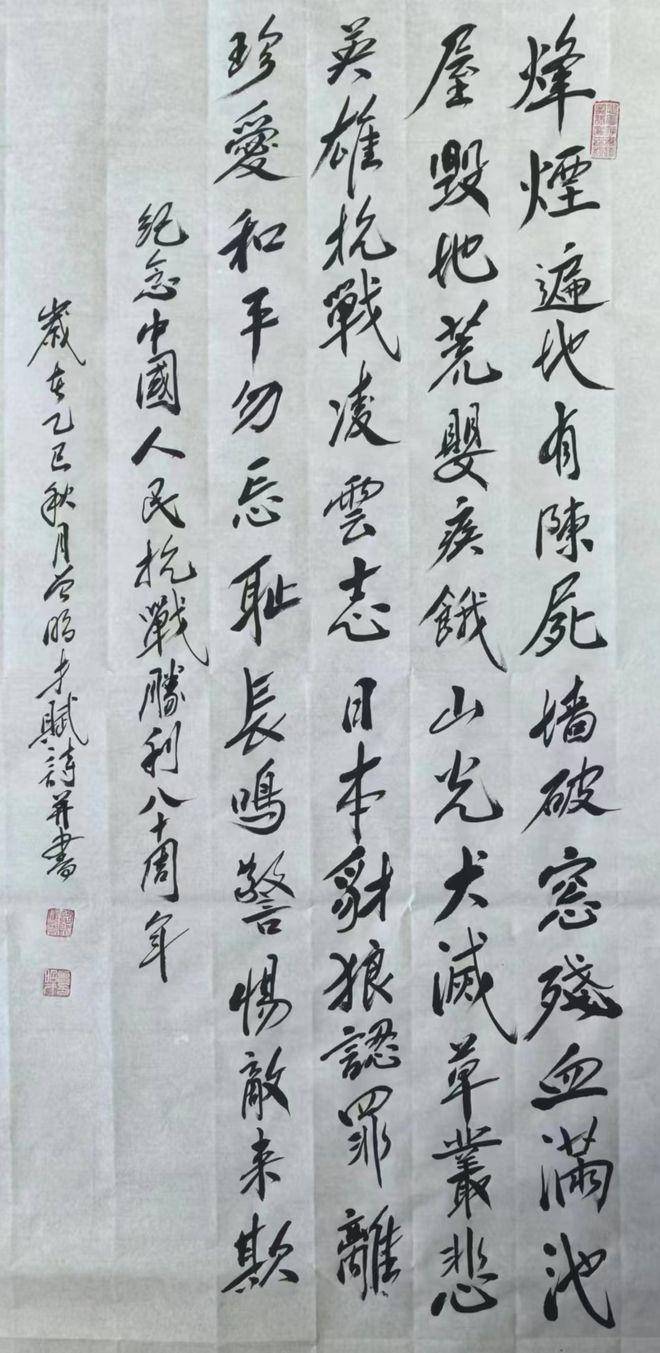 烽煙遍地有陳屍墙破窓殘血滿池
屋毀地荒嬰疾餓山光犬滅草叢悲
英雄抗戰凌雲志日本豺狼認罪離
珍愛和平勿忘恥長鳴警惕敵来欺
紀念中國人民抗戰勝利八十周年
歲在乙巳秋月才賦詩并書